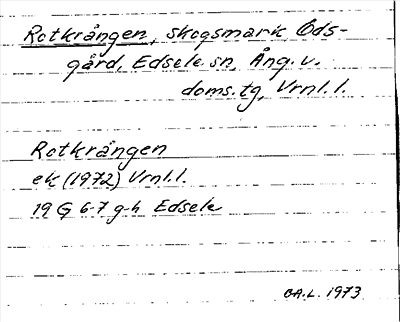 Rotkrången, skogsmark Ods-
gård, Edsele sn, Ång. v.
doms. tg, Vrnl. l.
Rotkrången
ek (1972) Vrnl. l.
19 G 6-7 g-h Edsele
BA.L. 1973